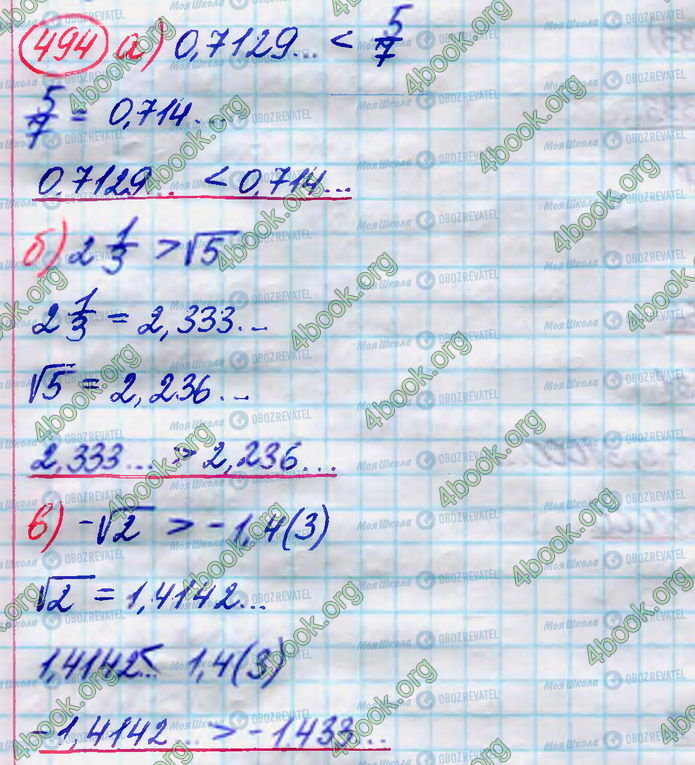 494 а) 0,7129... < 5/7
5/7 = 0,714...
0,7129... < 0,714...
б) 2 1/3 > √5
2 1/3 = 2,333...
√5 = 2,236...
2,333... > 2,236...
в) -√2 > -1,4(3)
√2 = 1,4142...
1,4142.. < 1,4(3)
-1,4142... > -1,433...
4book.org
МояШкола
OBOZREVATEL